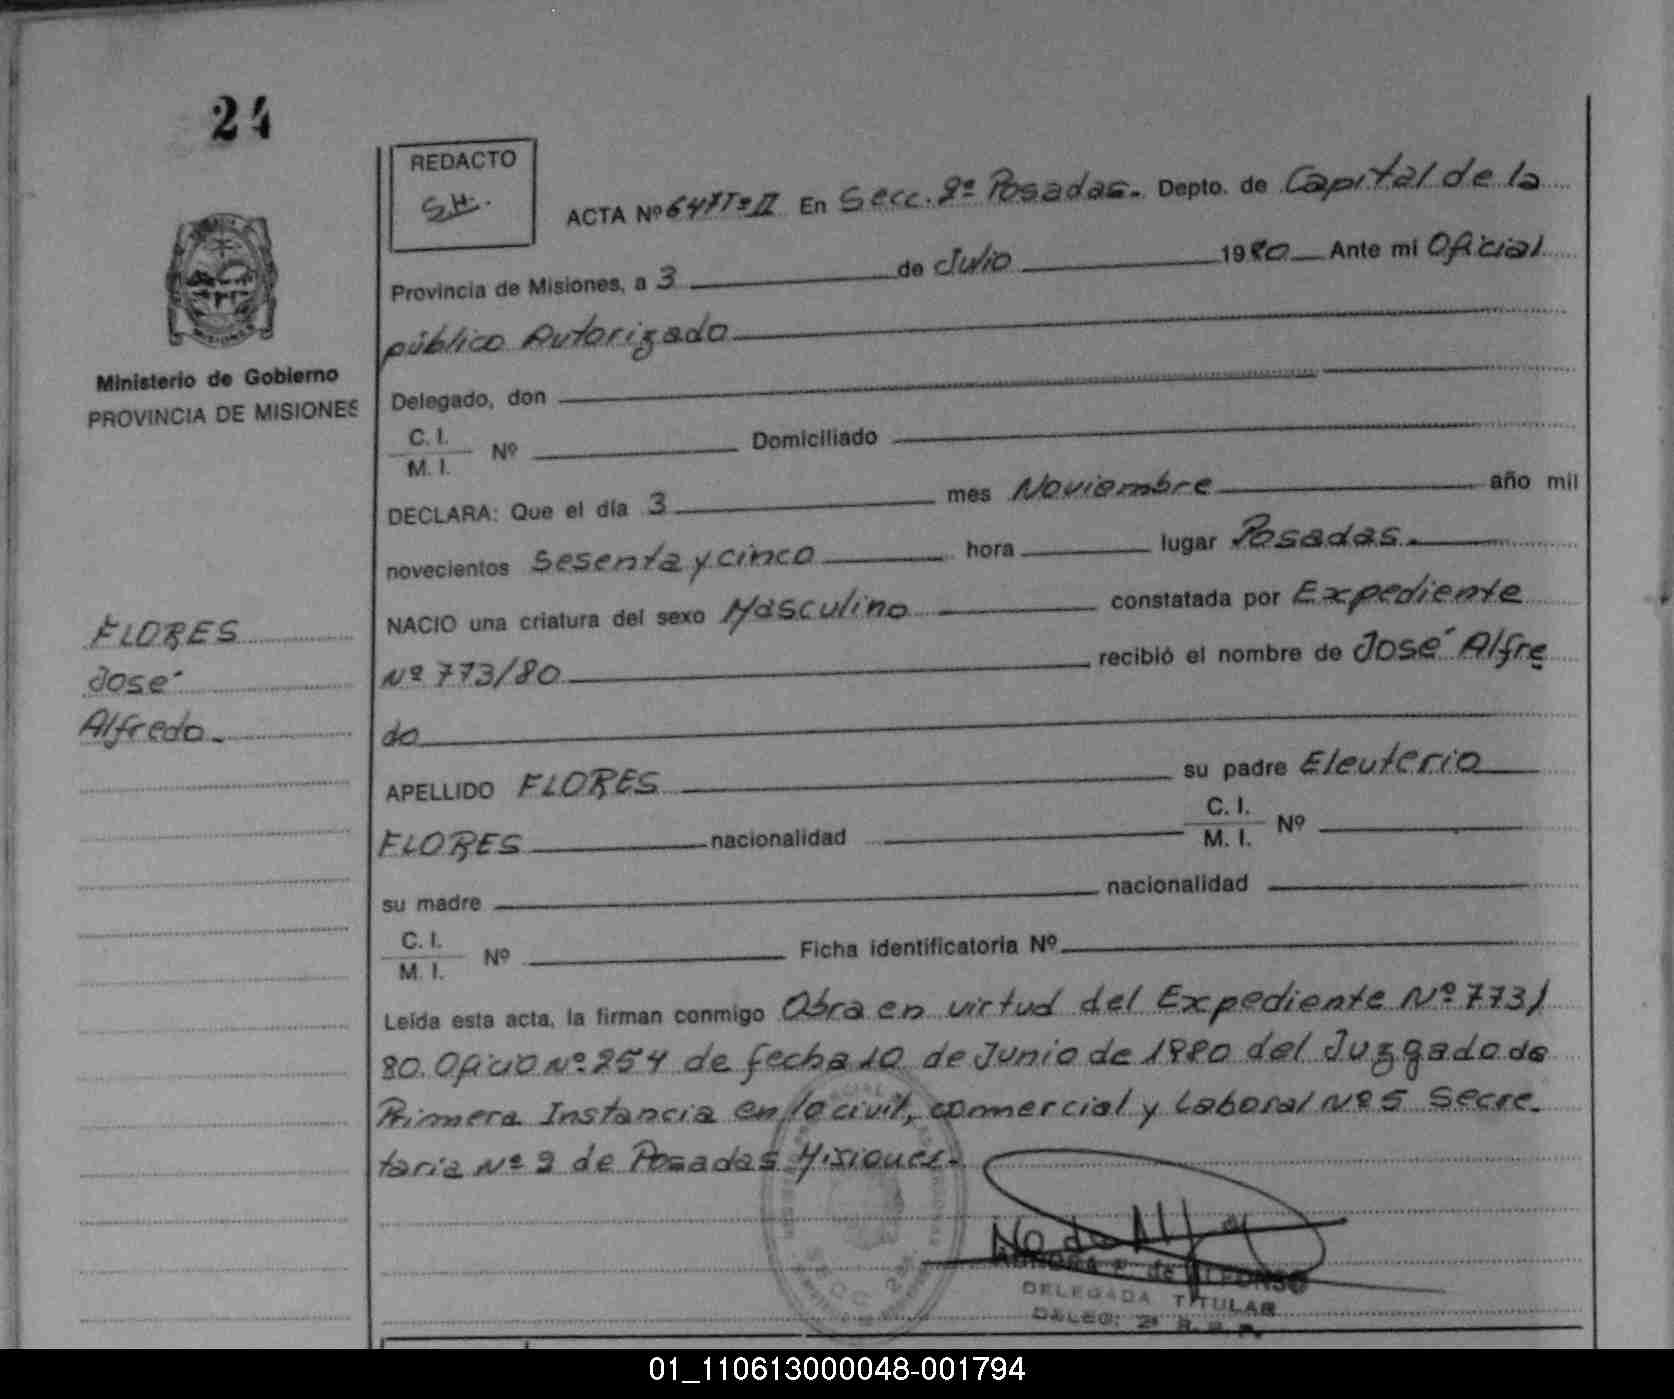 24
REDACTO
S.H.
ACTA Nº 647 Tº II En Secc. 2º Posadas. Depto. de Capital de la
Provincia de Misiones, a 3 de Julio 1980 Ante mi Oficial
público Autorizado
Ministerio de Gobierno
PROVINCIA DE MISIONES
Delegado, don
C. I.
M. I. Nº Domiciliado
DECLARA: Que el día 3 mes Noviembre año mil
novecientos Sesenta y cinco hora lugar Posadas.
NACIO una criatura del sexo Masculino constatada por Expediente
FLORES
José
Alfredo.
Nº 773/80 recibió el nombre de José Alfre
do
APELLIDO FLORES su padre Eleuterio
FLORES nacionalidad C. I.
M. I. Nº
su madre nacionalidad
C. I.
M. I. Nº Ficha identificatoria Nº
Leída esta acta, la firman conmigo Obra en virtud del Expediente Nº 773/
80. Oficio Nº 254 de fecha 10 de Junio de 1980 del Juzgado de
Primera Instancia en lo civil, comercial y Laboral Nº 5 Secre.
taria Nº 9 de Posadas Misiones.
SECC. 2ª
AURORA F. de ALFONSO
DELEGADA TITULAR
DELEG. 2ª
01_110613000048-001794